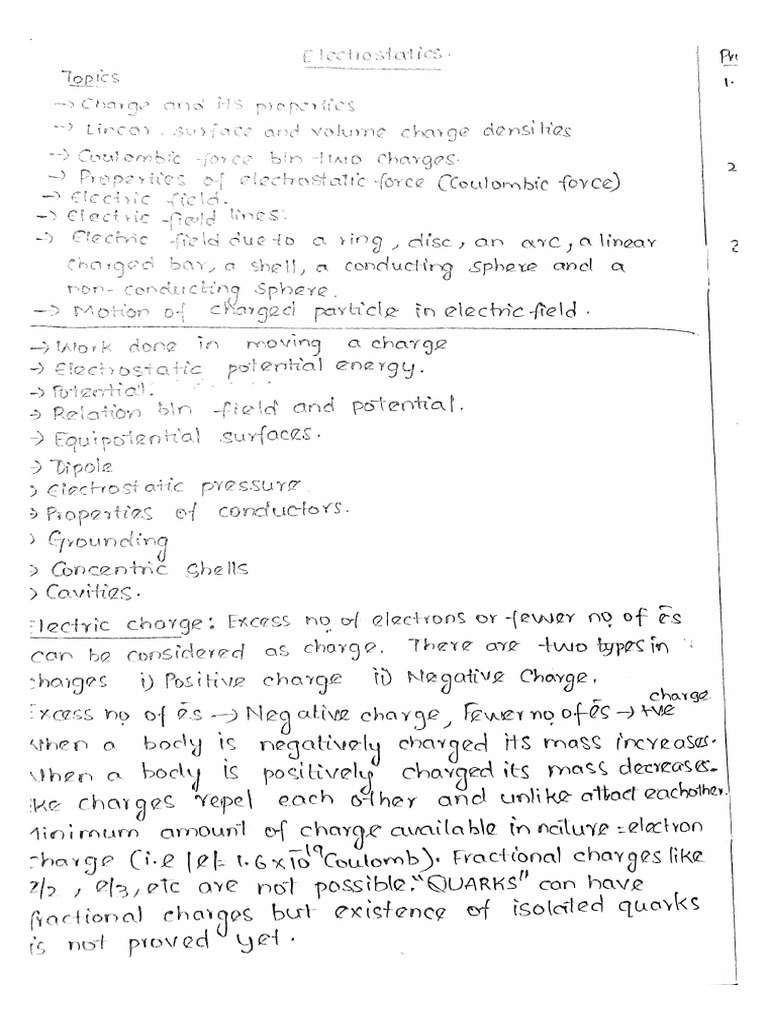 Electrostatics.
Topics
-> Charge and its properties
-> Linear, surface and volume charge densities
-> Coulombic force b/n two charges.
-> Properties of electrostatic force (Coulombic force)
-> Electric field.
-> Electric field lines.
-> Electric field due to a ring, disc, an arc, a linear
charged bar, a shell, a conducting sphere and a
non-conducting sphere.
-> Motion of charged particle in electric field.
-> Work done in moving a charge
-> Electrostatic potential energy.
-> Potential.
-> Relation b/n field and potential.
-> Equipotential surfaces.
-> Dipole
> Electrostatic pressure
> Properties of conductors.
> Grounding
> Concentric shells
> Cavities.
Electric charge: Excess no. of electrons or fewer no. of ēs
can be considered as charge. There are two types in
charges i) Positive charge ii) Negative Charge.
Excess no. of ēs -> Negative charge, Fewer no. of ēs -> +ve charge
When a body is negatively charged its mass increases.
When a body is positively charged its mass decreases.
like charges repel each other and unlike attact each other.
Minimum amount of charge available in nature = electron
charge (i.e |e|= 1.6×10⁻¹⁹ Coulomb). Fractional charges like
e/2, e/3, etc are not possible. "QUARKS" can have
fractional charges but existence of isolated quarks
is not proved yet.
Pr
1.
2